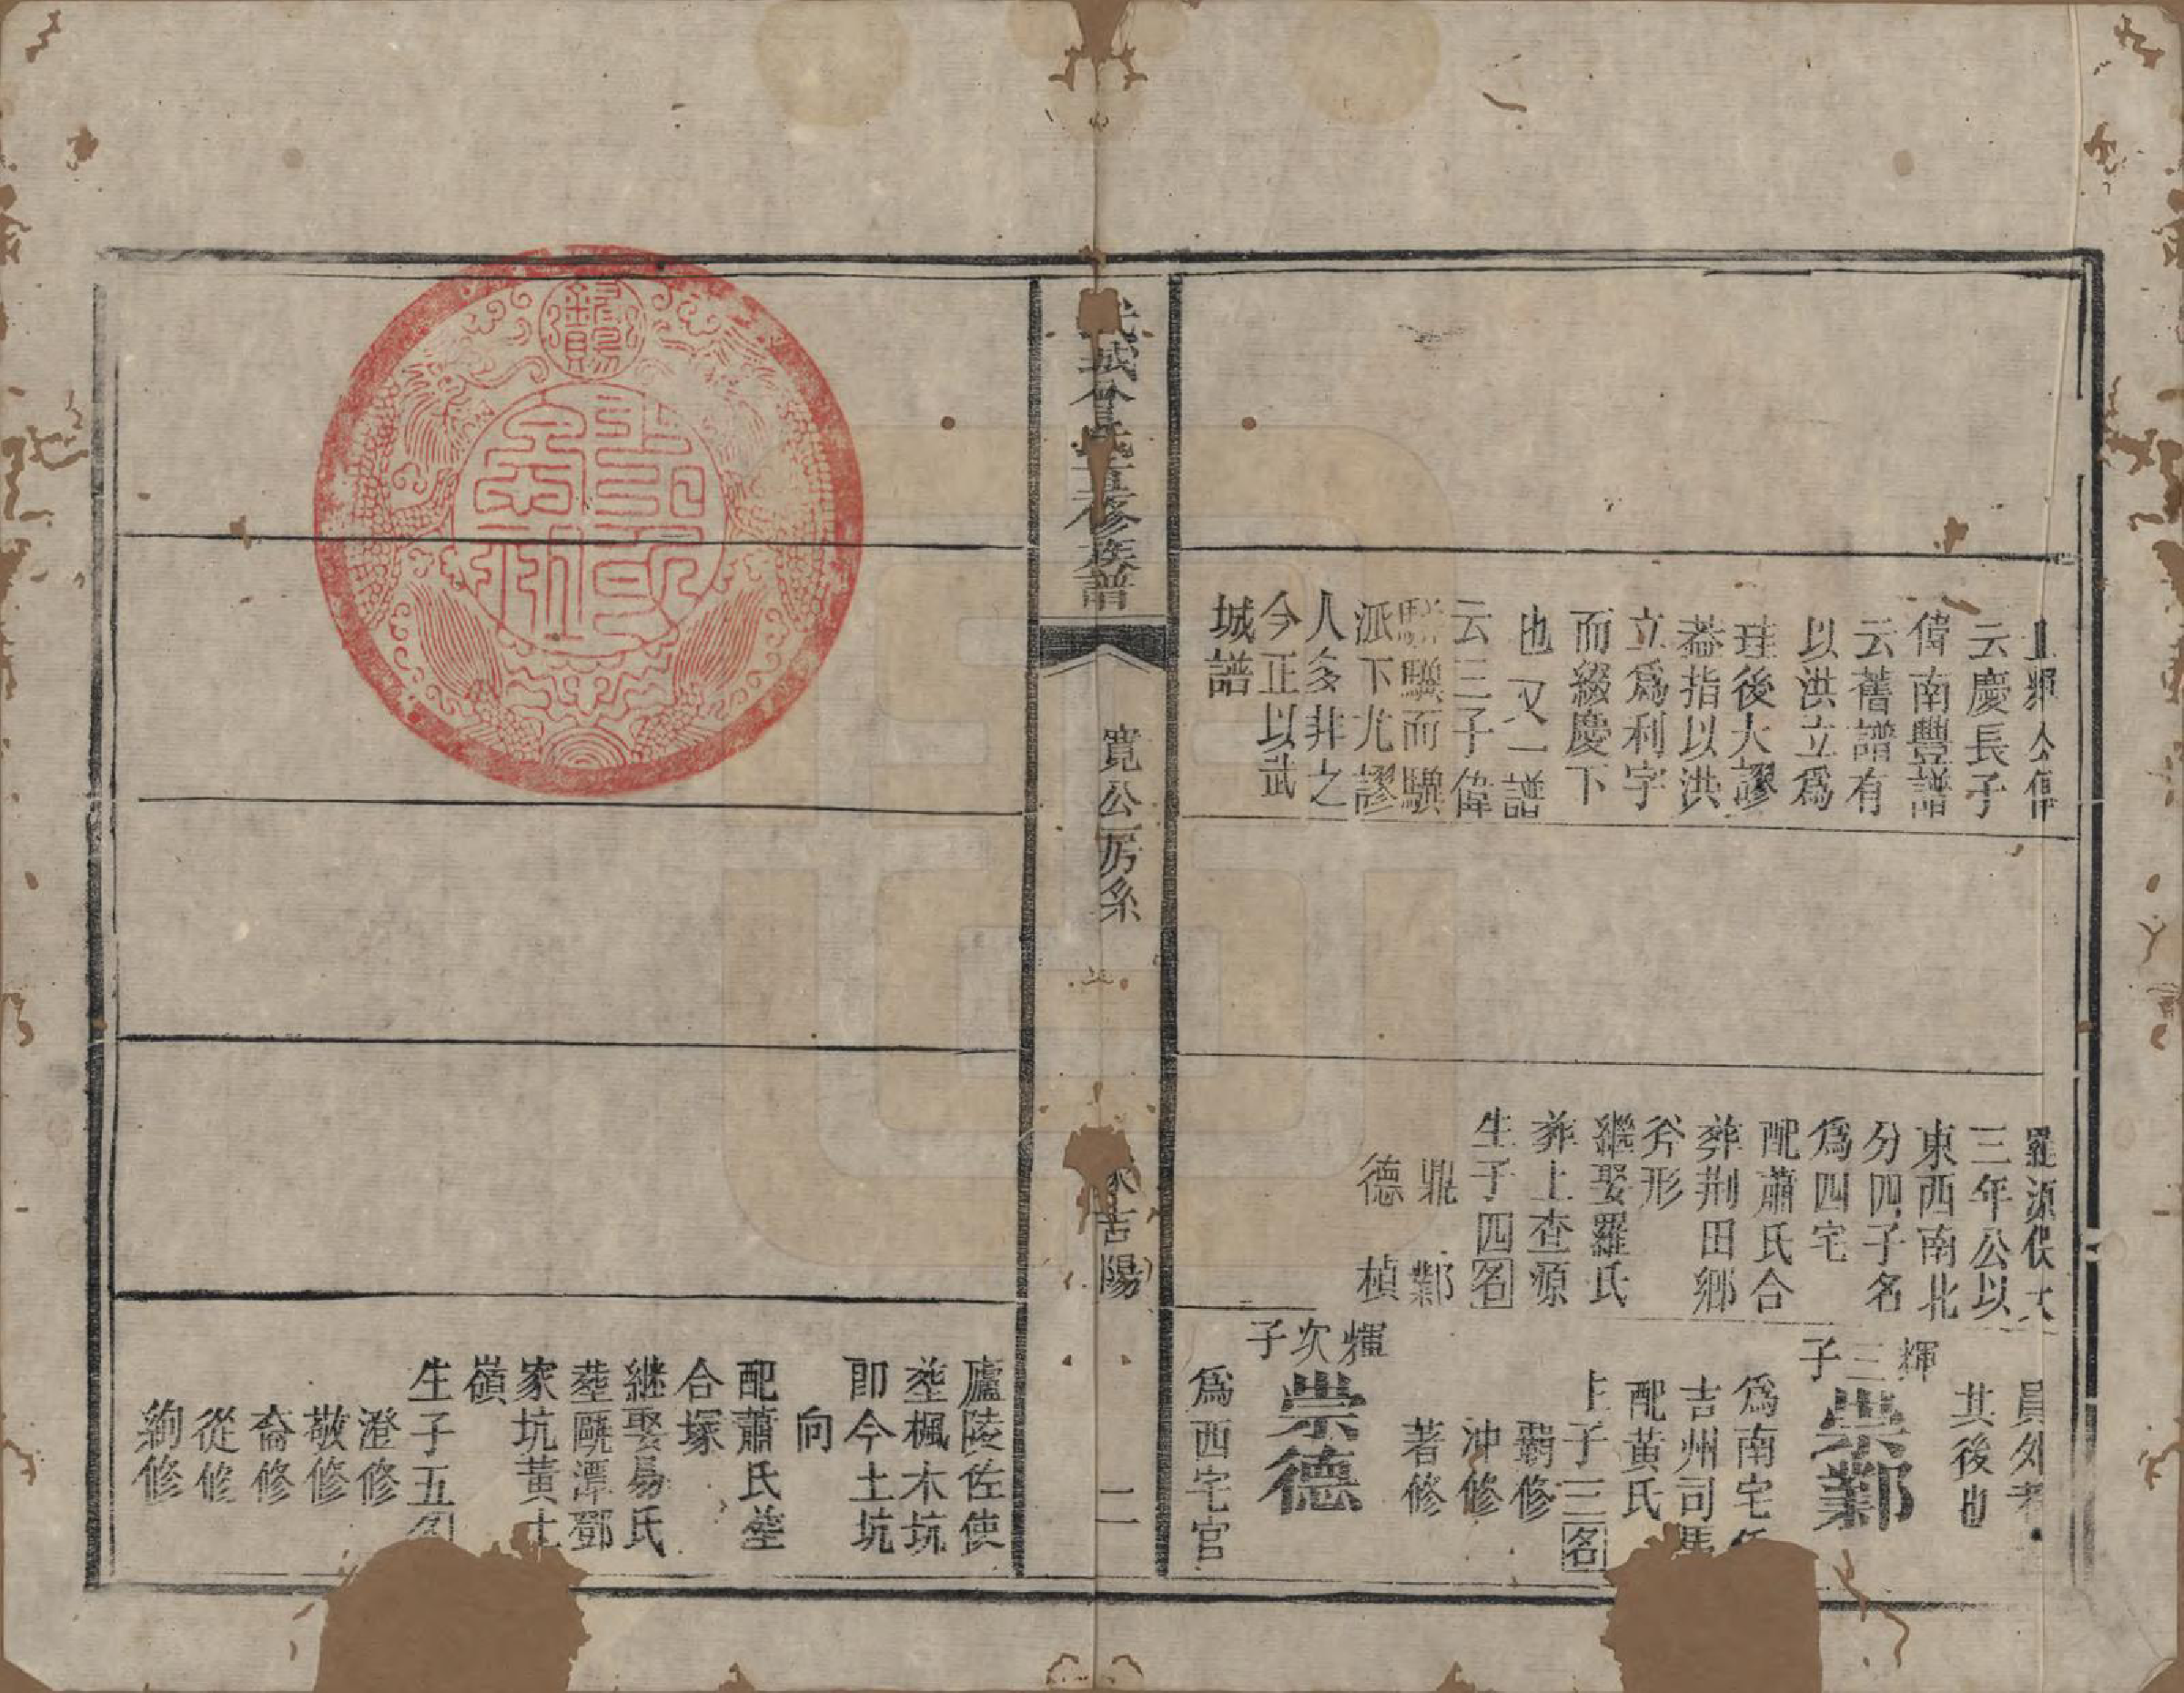 上輝公傳
云慶長子
偉南豐譜
云舊譜有
以洪立爲
珪後大謬
葢指以洪
立爲利字
而綴慶下
也又一譜
云三子偉
驥而驥
派下尤謬
人多非之
今正以武
城譜
羅源俟大
三年公以
東西南北
分四子名
爲四宅
配蕭氏合
葬荆田鄉
斧形
繼娶羅氏
葬上查源
生子四名
鼎 鄴
德 楨
員外者
其後也
輝三子
崇鄴
爲南宅
吉州司馬
配黃氏
生子三名
霸修
沖修
著修
輝次子
崇德
爲西宅官
武城曾氏五修族譜
寬公房系
吉陽
二
廬陵佐使
塟楓木坑
即今土坑
向
配蕭氏塟
合塚
継娶易氏
塟甌潭鄧
家坑黃土
嶺
生子五名
澄修
敬修
侖修
從修
絢修
歸賜